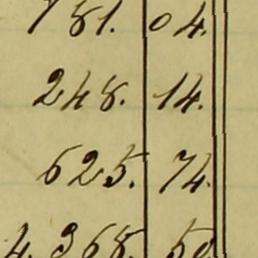 781. 04.
248. 14.
625. 74.
4.368. 50